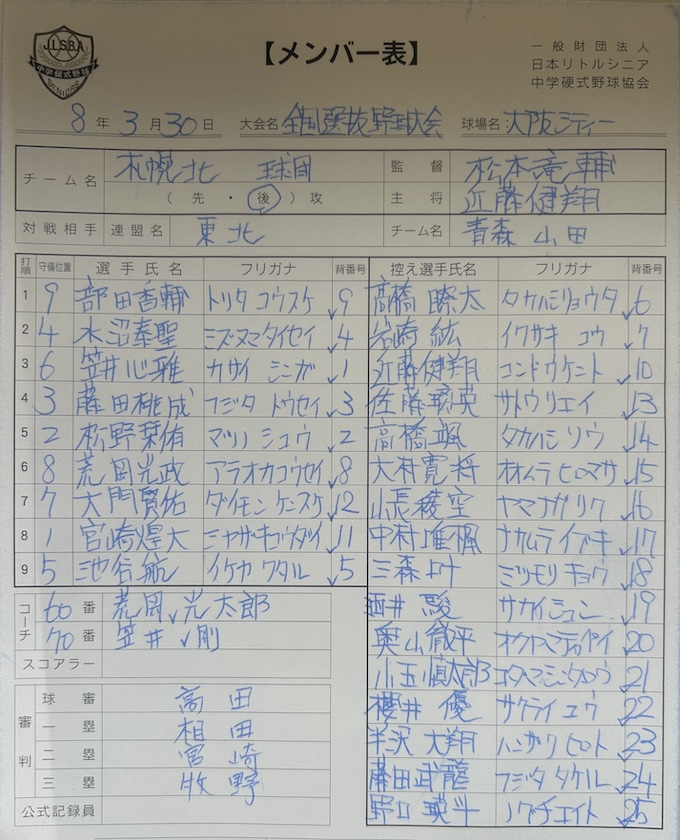 J.L.S.B.A
中学硬式野球
SENIORS
【メンバー表】
一般財団法人
日本リトルシニア
中学硬式野球協会
8年3月30日 大会名 全国選抜野球大会 球場名 大阪シティー
チーム名 札幌北 球団 監督 松本竜輔
(先・後)攻 主将 近藤健翔
対戦相手 連盟名 東北 チーム名 青森山田
打順 守備位置 選手氏名 フリガナ 背番号 控え選手氏名 フリガナ 背番号
1 9 部田香輔 トリタ コウスケ 9 高橋瞭太 タカハシリョウタ 6
2 4 水沼泰聖 ミズヌマタイセイ 4 岩崎紘 イワサキ コウ 7
3 6 笠井心雅 カサイ シンガ 1 近藤健翔 コンドウケント 10
4 3 藤田桃成 フジタ トウセイ 3 佐藤 英 サトウリエイ 13
5 2 松野栞侑 マツノ シュウ 2 高橋颯 タカハシ ソウ 14
6 8 荒岡光政 アラオカコウセイ 8 大村寛将 オオムラ ヒロマサ 15
7 7 大門賢佑 ダイモン ケンスケ 12 山長稜空 ヤマナガリク 16
8 1 宮崎煌大 ミヤザキコウダイ 11 中村唯楓 ナカムライブキ 17
9 5 池谷航 イケガヤ ワタル 5 三森 ミツモリ キョウ 18
コーチ 60番 荒岡光太郎 酒井駿 サカイシュン 19
70番 笠井剛 奥山徹平 オクヤマテッペイ 20
スコアラー 小玉慎太郎 コダマシンタロウ 21
審判 球審 高田 櫻井優 サクライ ユウ 22
一塁 相田 半沢大翔 ハンザワ ヒロト 23
二塁 宮崎 藤田武龍 フジタ タケル 24
三塁 牧野 野口瑛斗 ノグチエイト 25
公式記録員